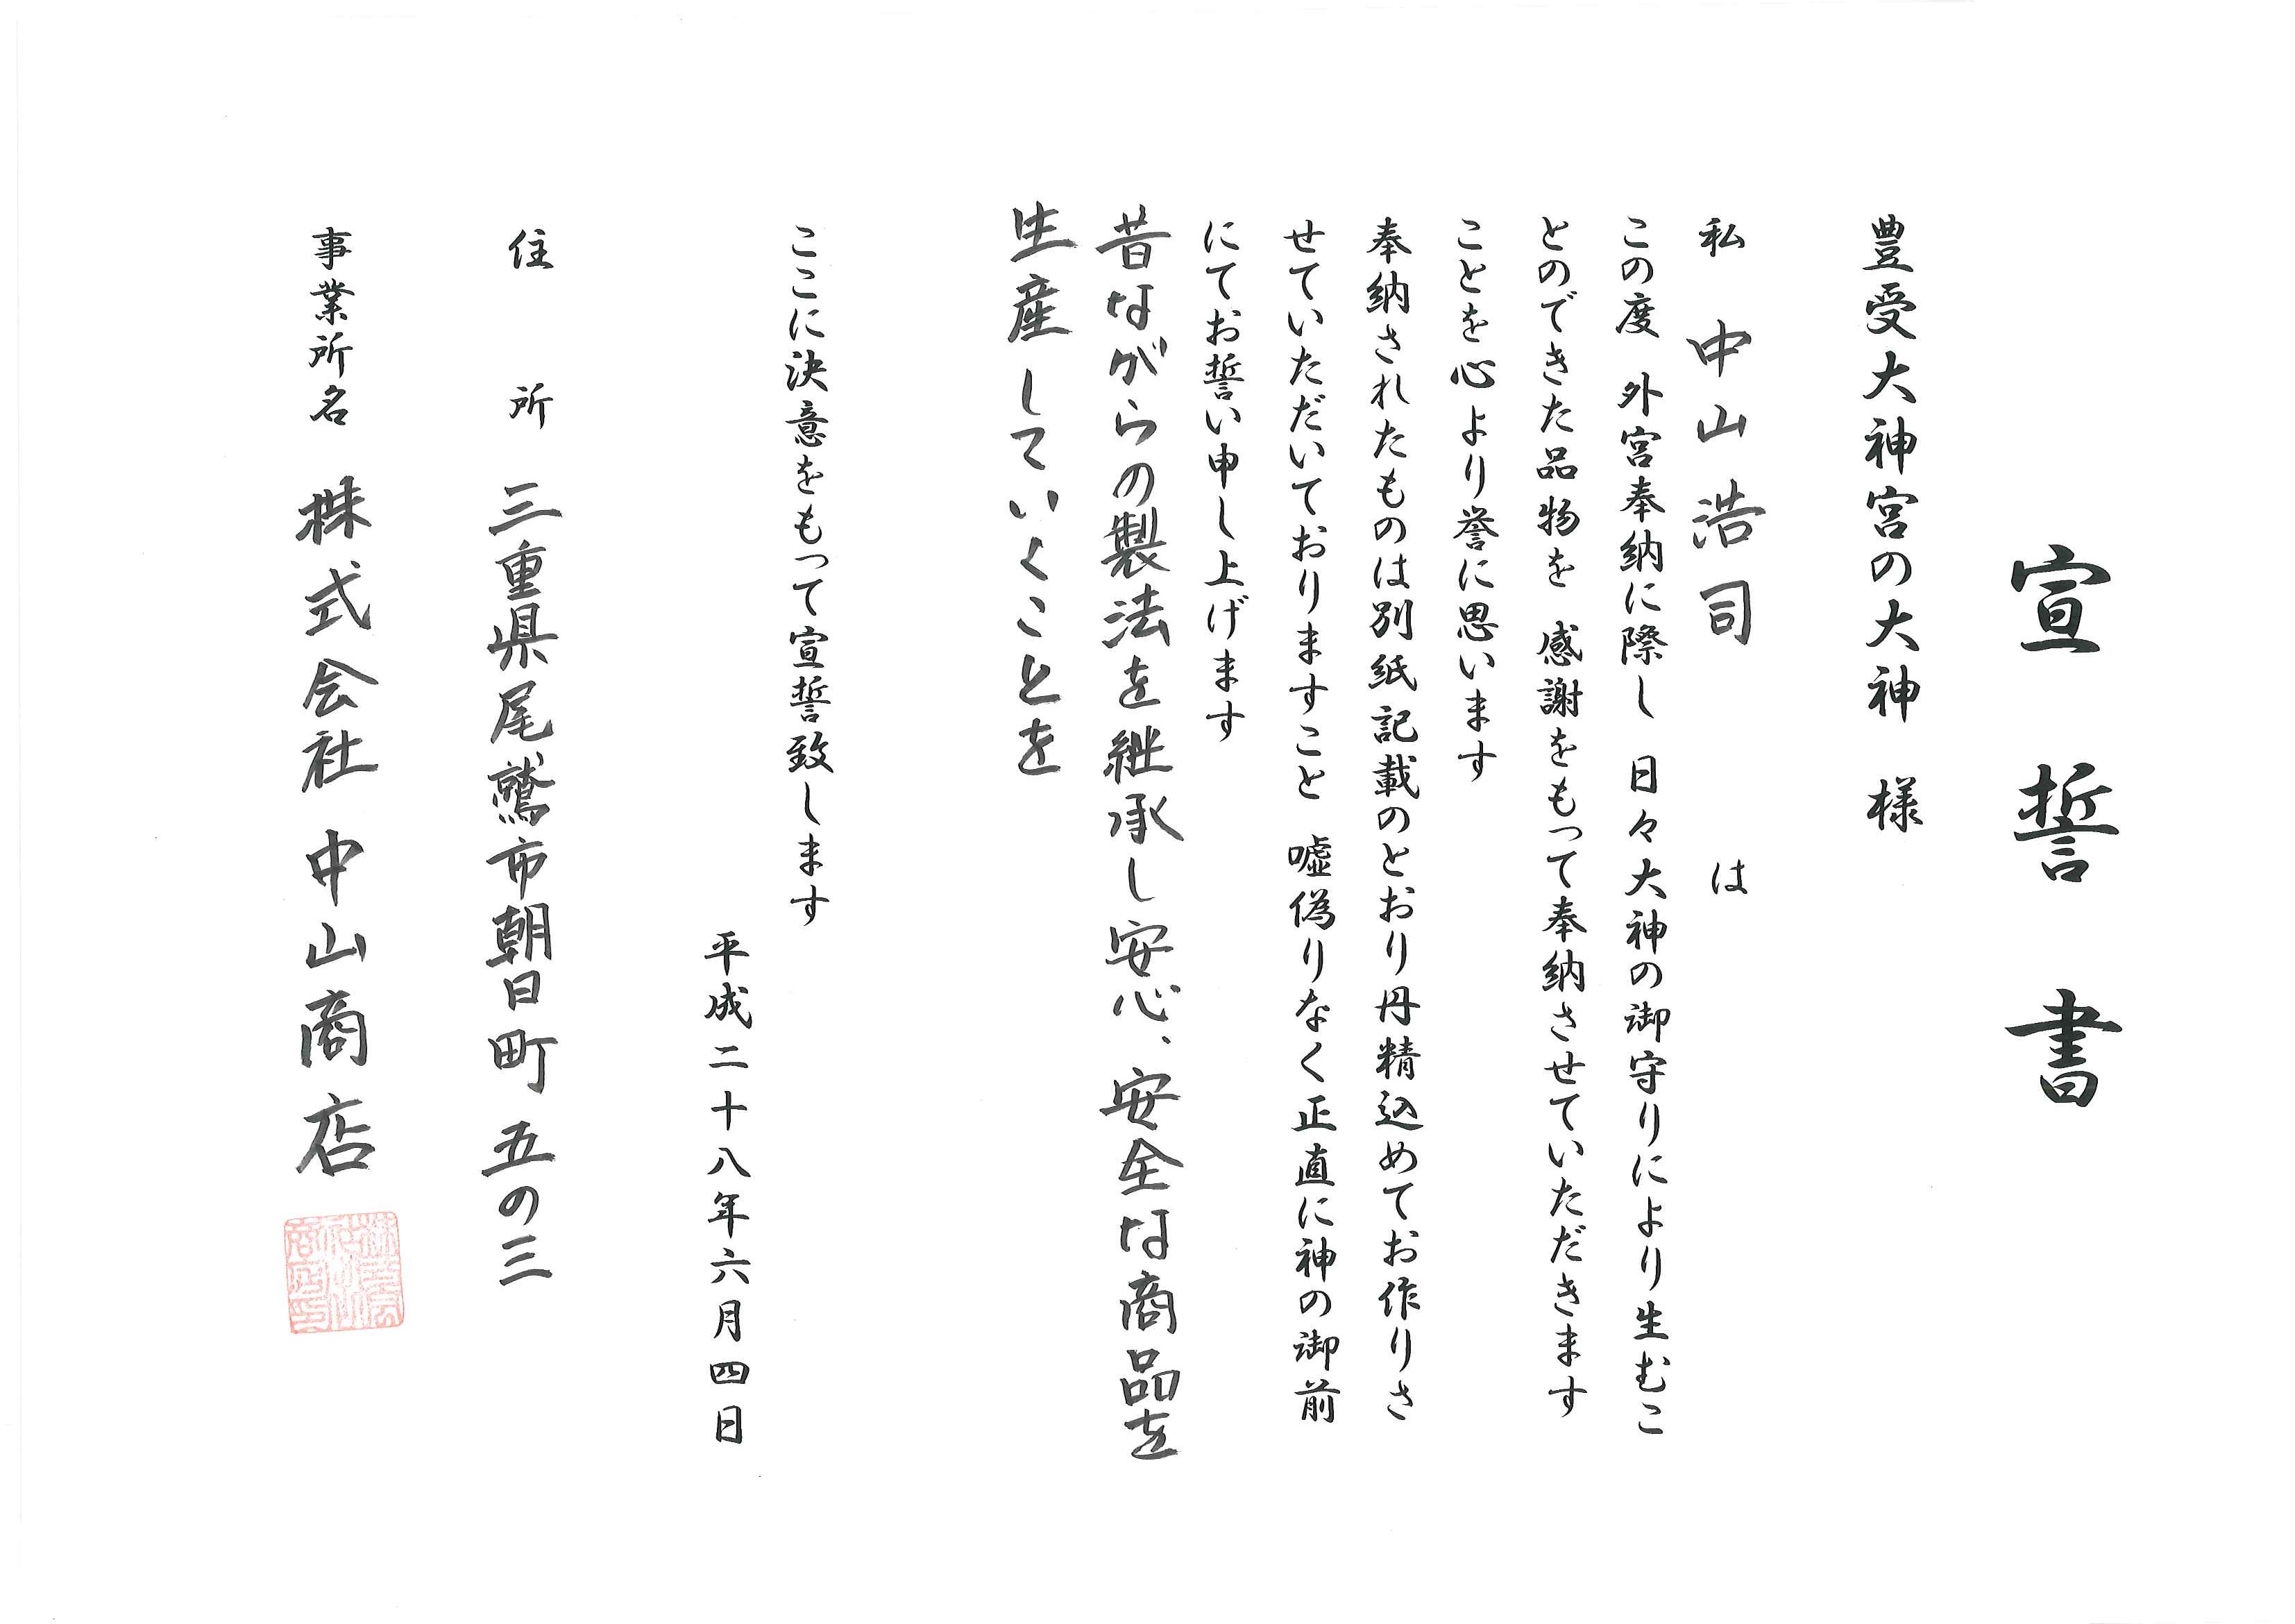 宣誓書
豊受大神宮の大神 様
私 中山浩司 は
この度 外宮奉納に際し 日々大神の御守りにより生むこ
とのできた品物を 感謝をもって奉納させていただきます
ことを心より誉に思います
奉納されたものは別紙記載のとおり丹精込めてお作りさ
せていただいておりますこと 嘘偽りなく正直に神の御前
にてお誓い申し上げます
昔ながらの製法を継承し安心、安全な商品を
生産していくことを
ここに決意をもって宣誓致します
平成二十八年六月四日
住所 三重県尾鷲市朝日町 五の三
事業所名 株式会社 中山商店